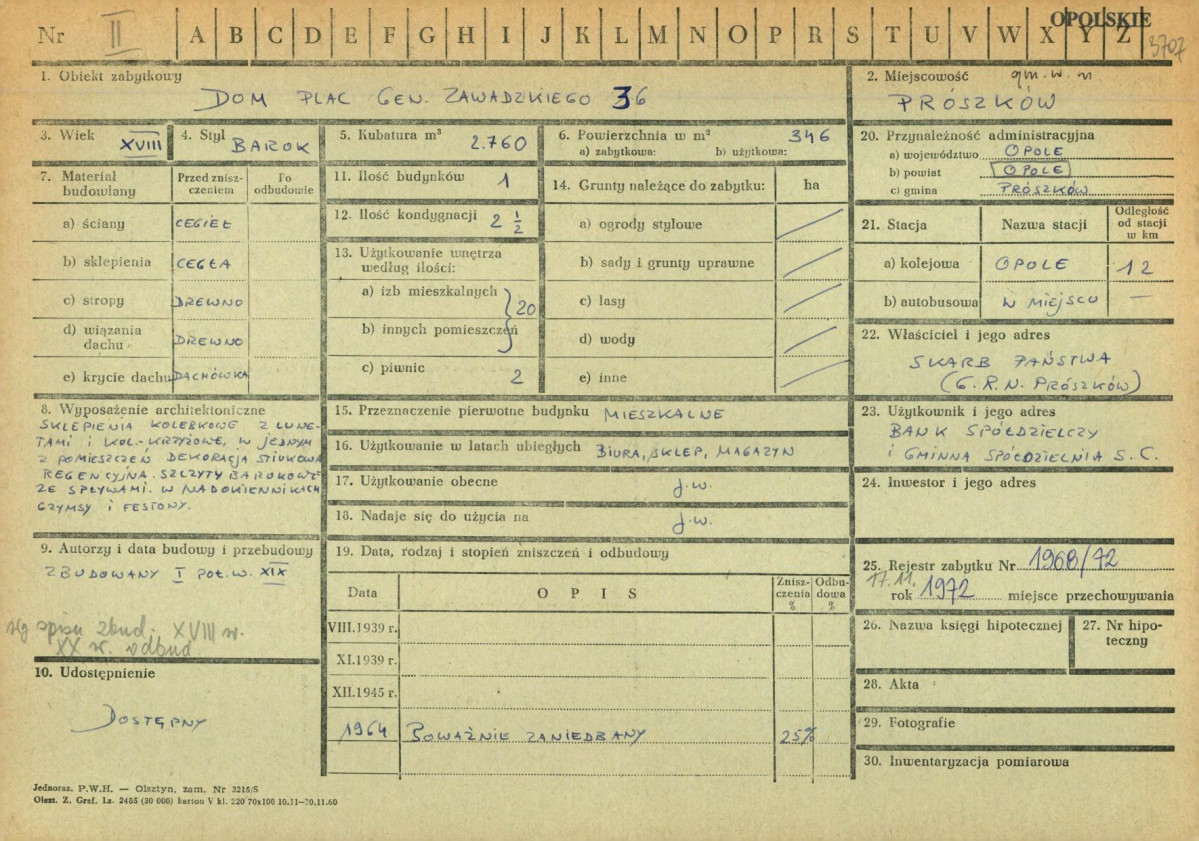 OPOLSKIE
Nr II A B C D E F G H I J K L M N O P R S T U V W X Y Z
3707
1. Obiekt zabytkowy
DOM PLAC GEN. ZAWADZKIEGO 36
2. Miejscowość gm. w. m
PRÓSZKÓW
3. Wiek XVIII
4. Styl BAROK
5. Kubatura m³ 2.760
6. Powierzchnia w m² 346
a) zabytkowa: b) użytkowa:
7. Materiał budowlany
Przed zniszczeniem
Po odbudowie
a) ściany CEGIEŁ
b) sklepienia CEGŁA
c) stropy DREWNO
d) wiązania dachu DREWNO
e) krycie dachu DACHÓWKA
8. Wyposażenie architektoniczne
SKLEPIENIA KOLEBKOWE Z LUNE-
TAMI I KOL-KRZYŻOWE, W JEDNYM
Z POMIESZCZEŃ DEKORACJA STIUKOWA
REGENCYJNA. SZCZYTY BAROKOWE
ZE SPŁYWAMI. W NADOKIENNIKACH
GZYMSY I FESTONY.
9. Autorzy i data budowy i przebudowy
ZBUDOWANY I POŁ. W. XIX
wg spisu zbud. XVIII w.
XX w. odbud
10. Udostępnienie
DOSTĘPNY
11. Ilość budynków 1
12. Ilość kondygnacji 2 1/2
13. Użytkowanie wnętrza
według ilości:
a) izb mieszkalnych
20
b) innych pomieszczeń
c) piwnic 2
14. Grunty należące do zabytku: ha
a) ogrody stylowe
b) sady i grunty uprawne
c) lasy
d) wody
e) inne
15. Przeznaczenie pierwotne budynku MIESZKALNE
16. Użytkowanie w latach ubiegłych BIURA, SKLEP, MAGAZYN
17. Użytkowanie obecne j.w.
18. Nadaje się do użycia na j.w.
19. Data, rodzaj i stopień zniszczeń i odbudowy
Data OPIS Zniszczenia % Odbudowa %
VIII.1939 r.
XI.1939 r.
XII.1945 r.
1964 POWAŻNIE ZANIEDBANY 25%
20. Przynależność administracyjna
a) województwo OPOLE
b) powiat OPOLE
c) gmina PRÓSZKÓW
21. Stacja Nazwa stacji Odległość od stacji w km
a) kolejowa OPOLE 12
b) autobusowa W MIEJSCU —
22. Właściciel i jego adres
SKARB PAŃSTWA
(G.R.N. PRÓSZKÓW)
23. Użytkownik i jego adres
BANK SPÓŁDZIELCZY
I GMINNA SPÓŁDZIELNIA S.C.
24. Inwestor i jego adres
25. Rejestr zabytku Nr 1968/72
17.11.
rok 1972 miejsce przechowywania
26. Nazwa księgi hipotecznej
27. Nr hipoteczny
28. Akta
29. Fotografie
30. Inwentaryzacja pomiarowa
Jednoraz. P.W.H. — Olsztyn, zam. Nr 3215/S
Olszt. Z. Graf. Lz. 2485 (30 000) karton V kl. 220 70x100 10.11—30.11.60